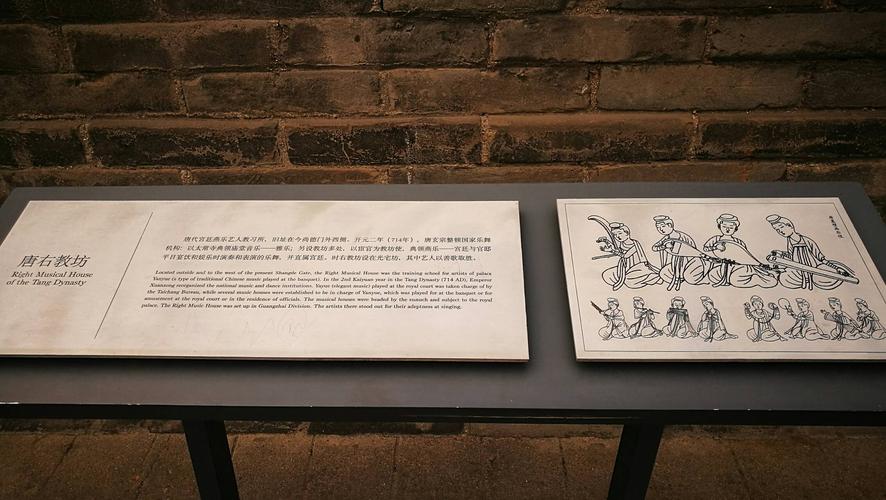 唐右教坊
Right Musical House
of the Tang Dynasty
唐代宫廷燕乐艺人教习所，旧址在今尚德门外西侧。开元二年（714年），唐玄宗整顿国家乐舞
机构：以太常寺典领庙堂音乐——雅乐；另设教坊多处，以宦官为教坊使，典领燕乐——宫廷与官邸
平日宴饮和娱乐时演奏和表演的乐舞，并直属宫廷。时右教坊设在光宅坊，其中艺人以善歌取胜。
Located outside and to the west of the present Shangde Gate, the Right Musical House was the training school for artists of palace
Yanyue (a type of traditional Chinese music played at the banquet). In the 2nd Kaiyuan year in the Tang Dynasty (714 AD), Emperor
Xuanzong reorganized the national music and dance institutions. Yayue (elegant music) played at the royal court was taken charge of by
the Taichang Bureau, while several music houses were established to be in charge of Yanyue, which was played for at the banquet or for
amusement at the royal court or in the residence of officials. The musical houses were headed by the eunuch and subject to the royal
palace. The Right Music House was set up in Guangzhai Division. The artists there stood out for their adeptness at singing.